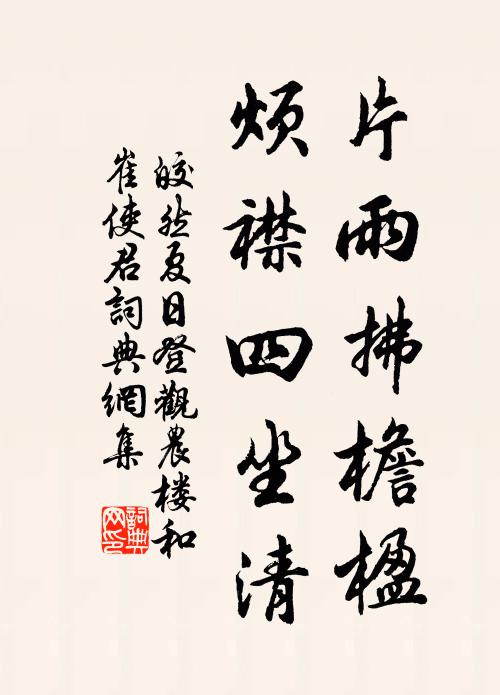 片雨拂檐楹
烦襟四坐清
皎然夏日登觀農楼和
崔使君詞典網集
詞典网印